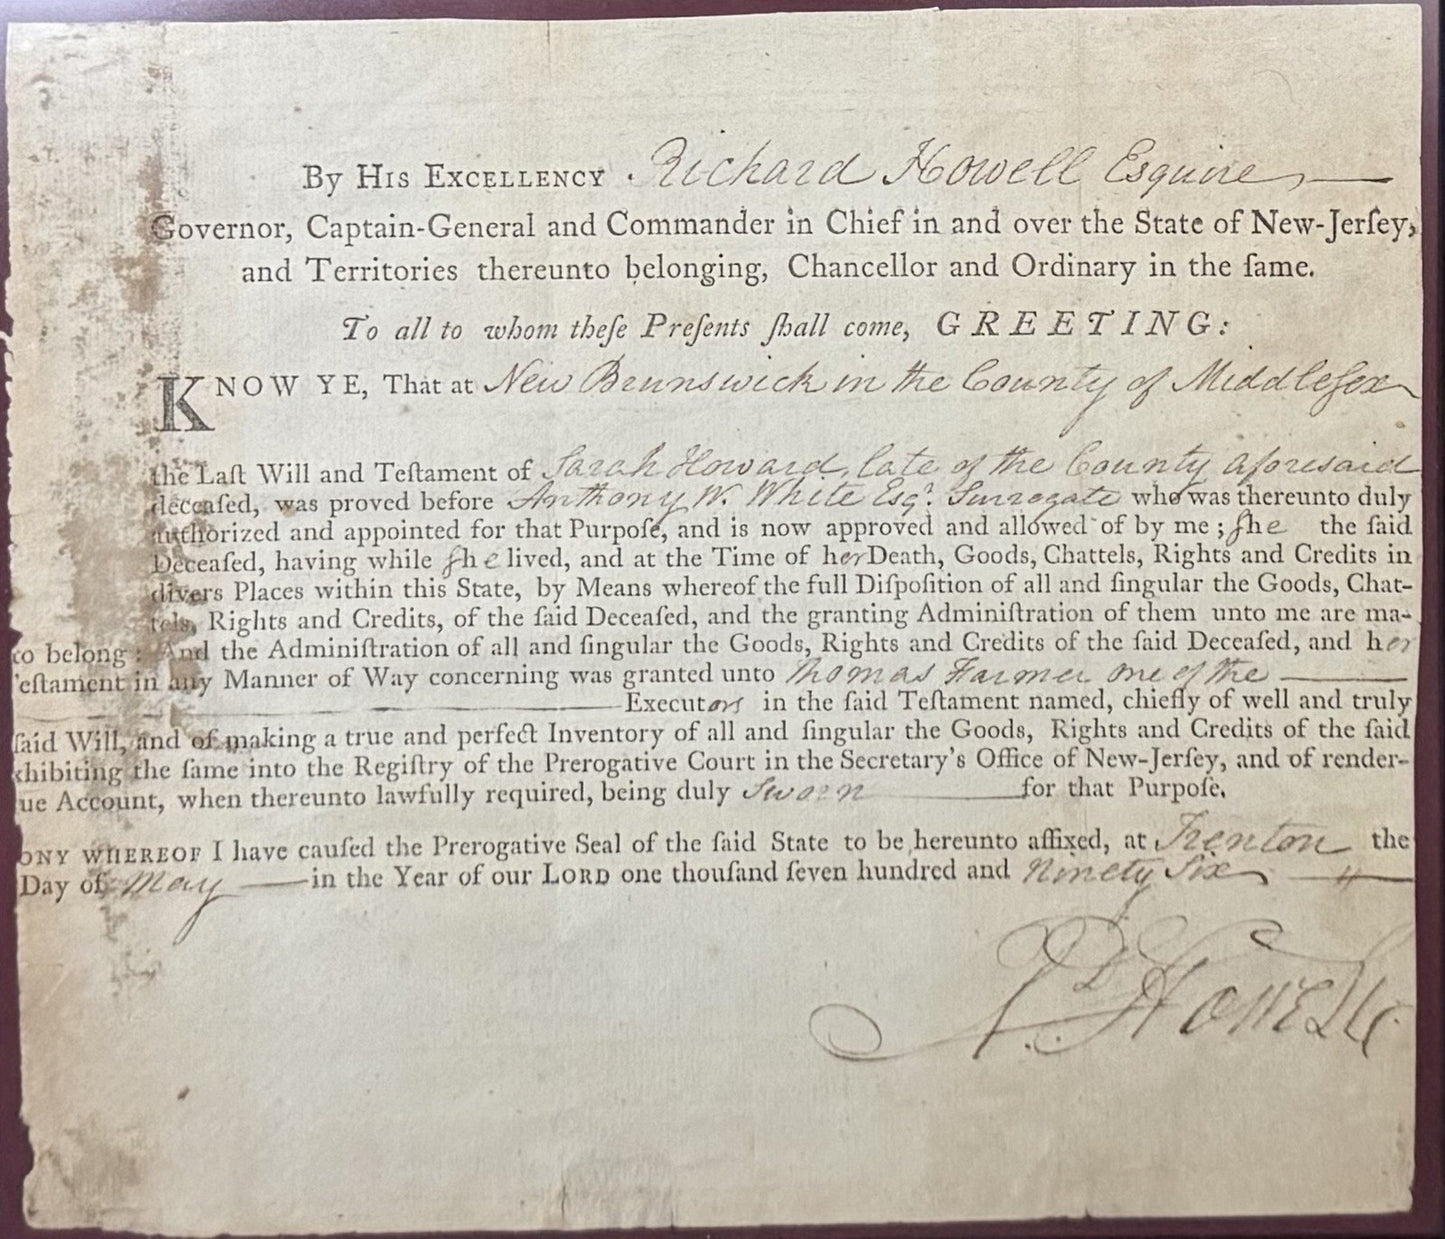 By His Excellency Richard Howell Esquire
Governor, Captain-General and Commander in Chief in and over the State of New-Jerſey,
and Territories thereunto belonging, Chancellor and Ordinary in the ſame.
To all to whom theſe Preſents ſhall come, GREETING:
KNOW YE, That at New Brunswick in the County of Middleſex
the Laſt Will and Teſtament of Sarah Howard, late of the County aforesaid
deceaſed, was proved before Anthony W. White Esqr. Surrogate who was thereunto duly
authorized and appointed for that Purpoſe, and is now approved and allowed of by me; ſhe the ſaid
Deceaſed, having while ſhe lived, and at the Time of her Death, Goods, Chattels, Rights and Credits in
divers Places within this State, by Means whereof the full Diſpoſition of all and ſingular the Goods, Chat-
tels, Rights and Credits, of the ſaid Deceaſed, and the granting Adminiſtration of them unto me are ma-
to belong: And the Adminiſtration of all and ſingular the Goods, Rights and Credits of the ſaid Deceaſed, and her
eſtament in any Manner of Way concerning was granted unto Thomas Farmer one of the
Executors in the ſaid Teſtament named, chiefly of well and truly
ſaid Will, and of making a true and perfect Inventory of all and ſingular the Goods, Rights and Credits of the ſaid
xhibiting the ſame into the Regiſtry of the Prerogative Court in the Secretary's Office of New-Jerſey, and of render-
ue Account, when thereunto lawfully required, being duly Sworn for that Purpoſe.
ONY WHEREOF I have cauſed the Prerogative Seal of the ſaid State to be hereunto affixed, at Trenton the
Day of May in the Year of our LORD one thouſand ſeven hundred and Ninety Six
Rd Howell